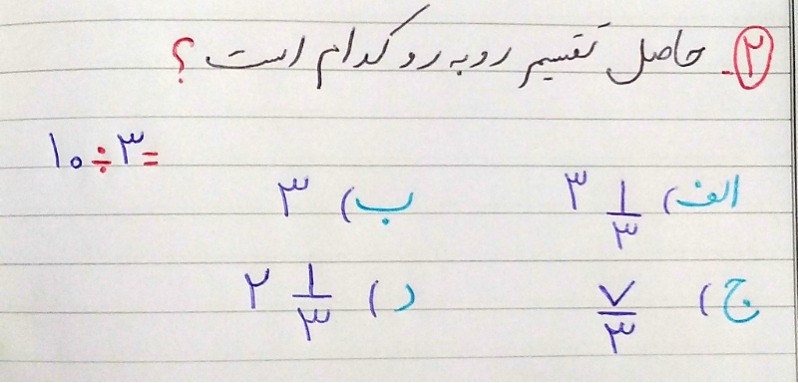 ۲_ حاصل تقسیم روبه رو کدام است ؟
۱۰÷۳=
الف) ۳ ۱/۳ ب) ۳
ج) ۷/۳ د) ۲ ۱/۳